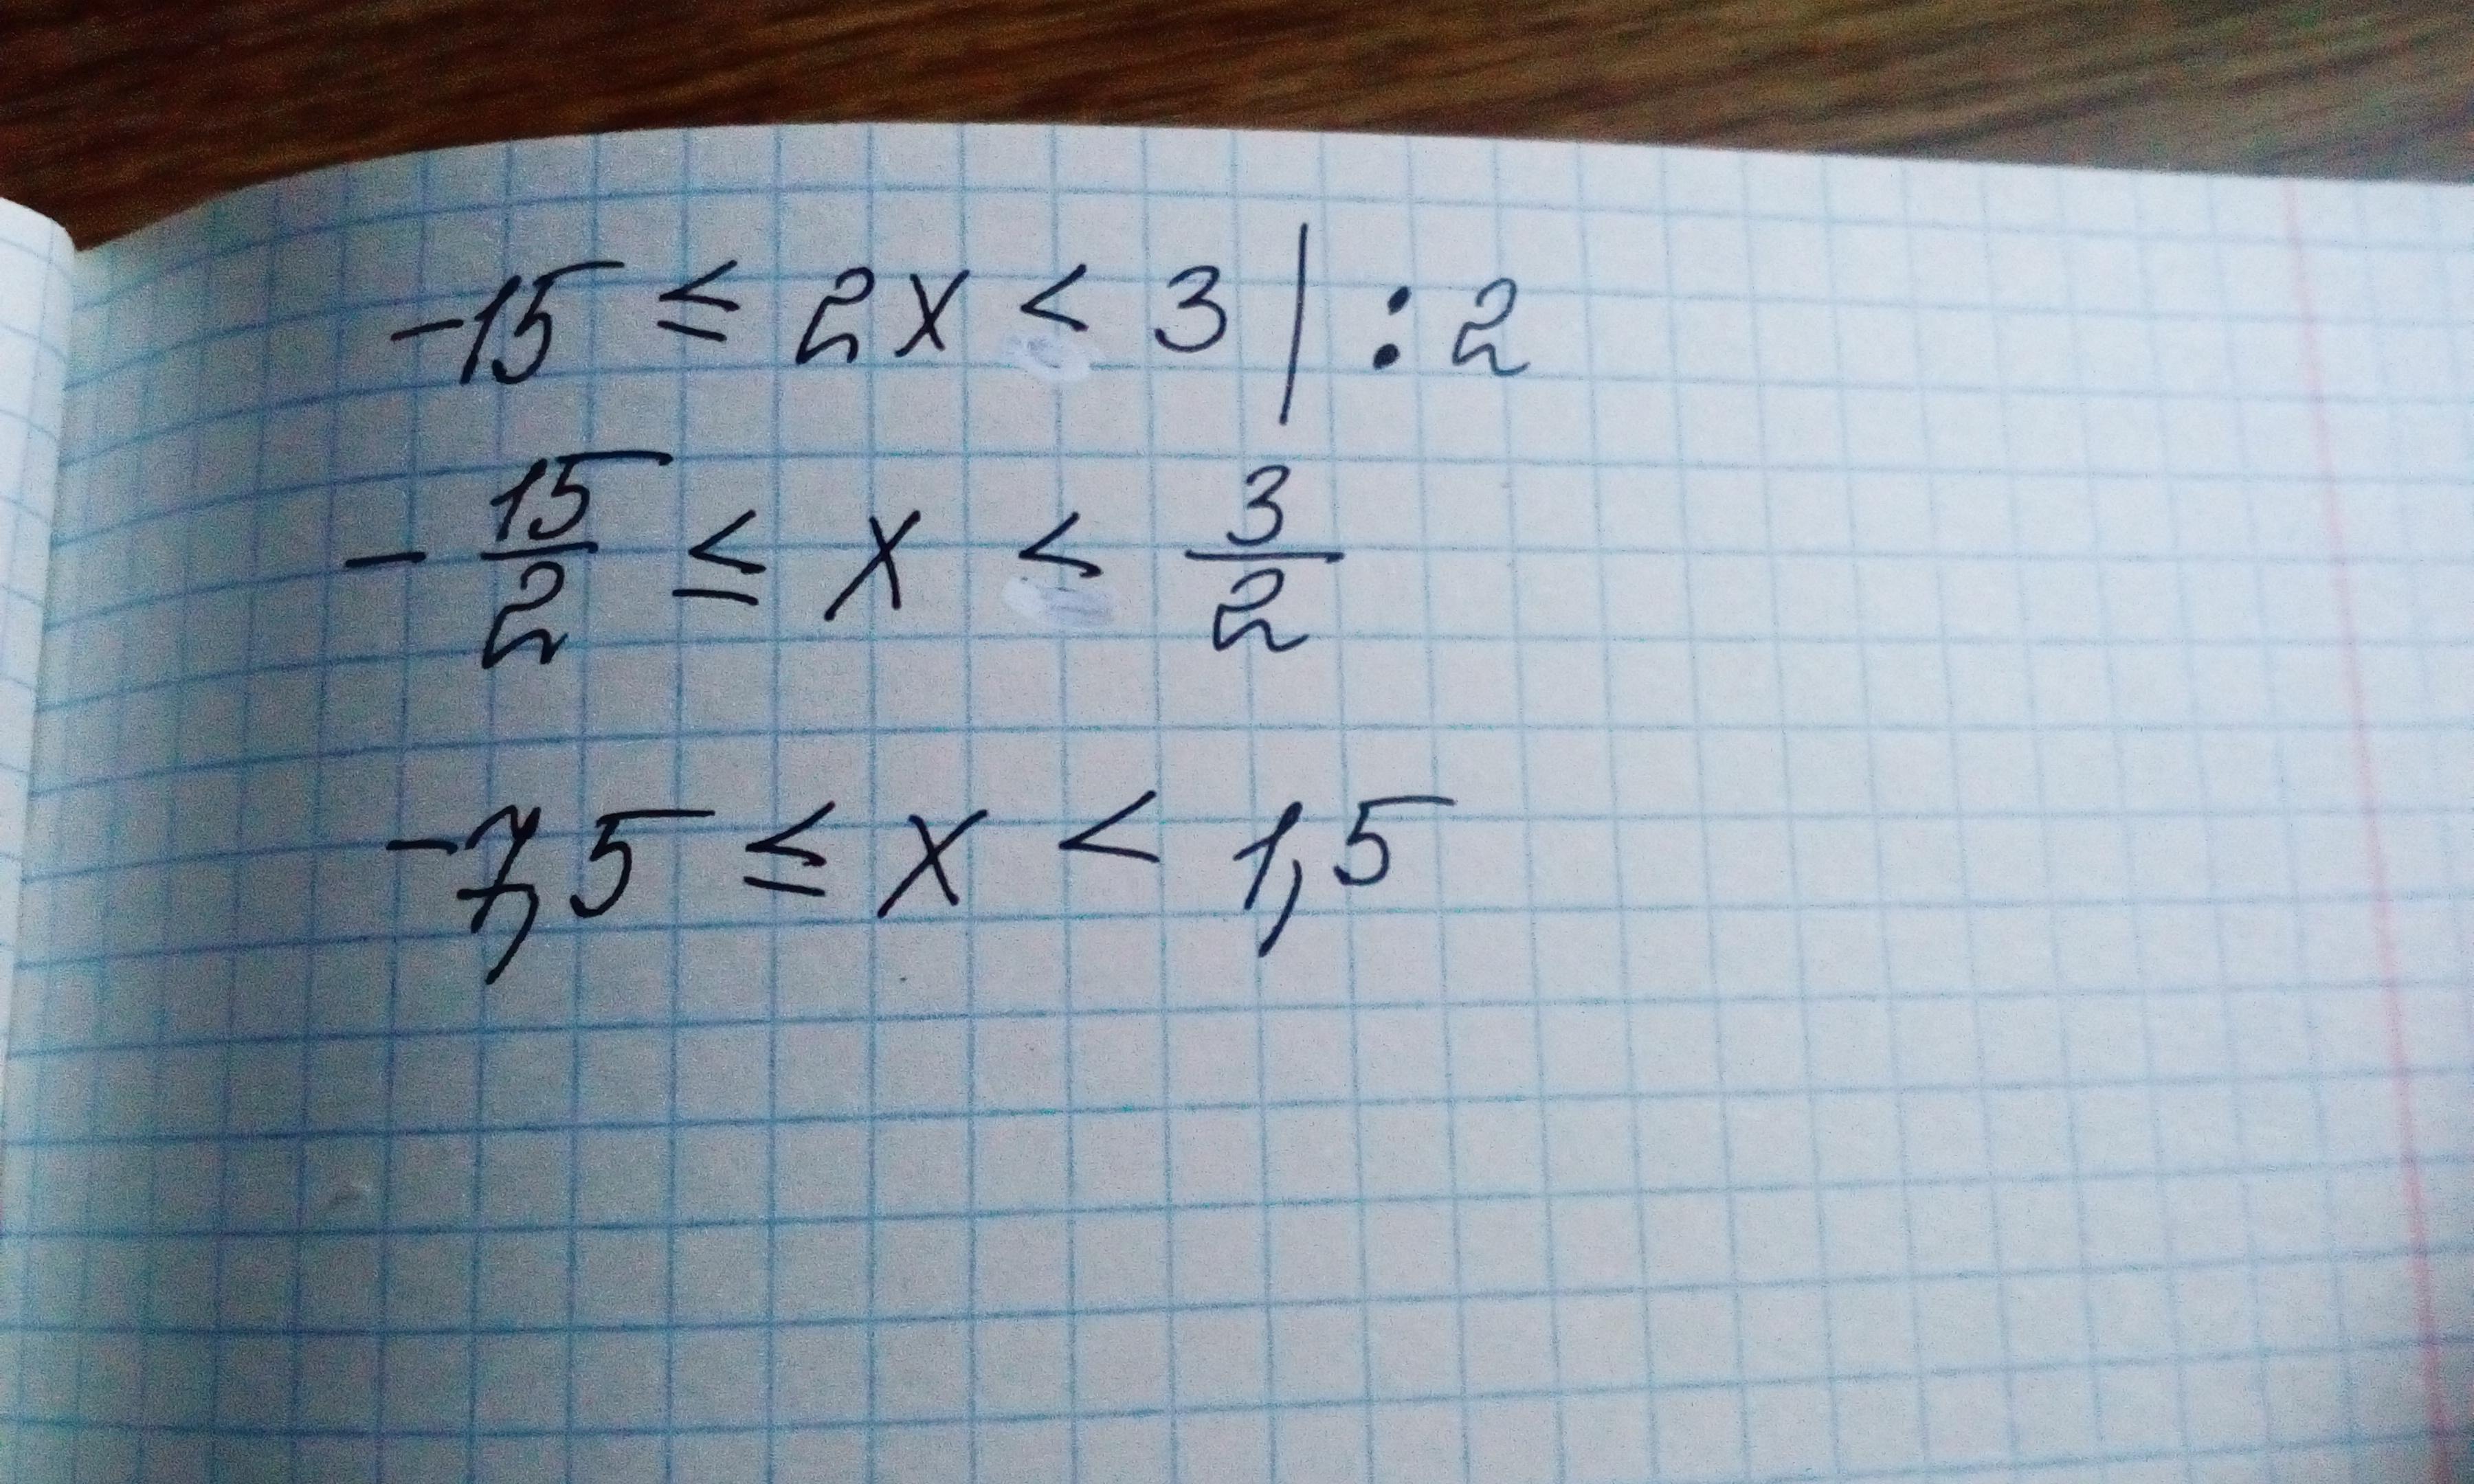 -15 ≤ 2x < 3 | : 2
- 15/2 ≤ x < 3/2
-7,5 ≤ x < 1,5